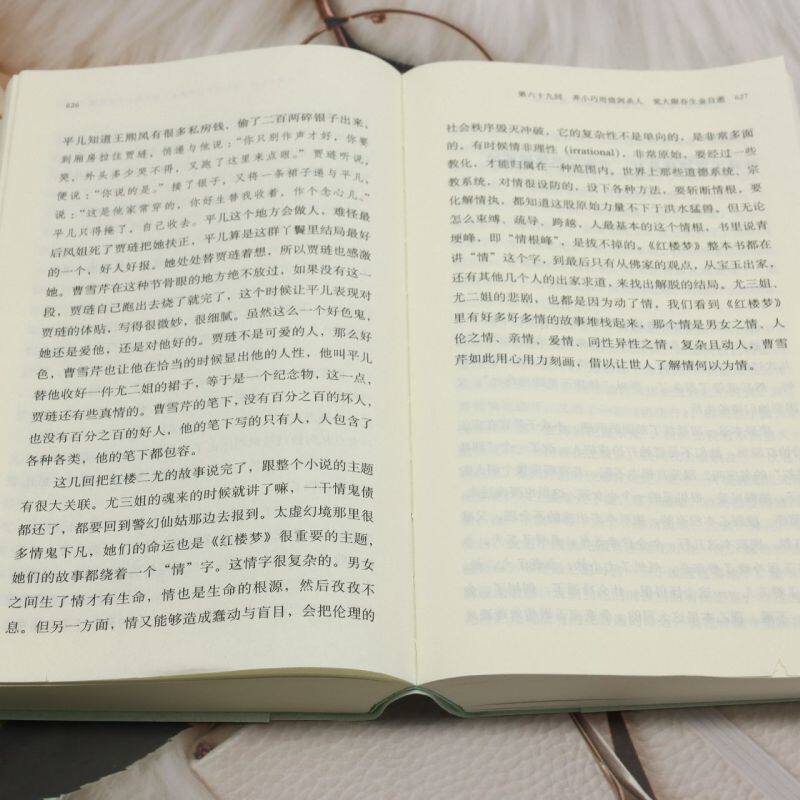 626
平儿知道王熙凤有很多私房钱,偷了二百两碎银子出来,
到厢房拉住贾琏,悄递与他说:“你只别作声才好,你要
哭,外头多少哭不得,又跑了这里来点眼。”贾琏听说,
便说:“你说的是。”接了银子,又将一条裙子递与平儿,
说:“这是他家常穿的,你好生替我收着,作个念心儿。”
平儿只得掩了,自己收去。平儿这个地方会做人,难怪最
后凤姐死了贾琏把她扶正,平儿算是这群丫鬟里结局最好
的一个,好人好报。她处处替贾琏着想,所以贾琏也感激
她。曹雪芹在这种节骨眼的地方绝不放过,如果没有这一
段,贾琏自己跑出去烧了就完了,这个时候让平儿表现对
贾琏的体贴,写得很微妙,很细腻。虽然这么一个好色鬼,
她还是爱他,还是对他好的。贾琏不是可爱的人,那么好
色,曹雪芹也让他在恰当的时候显出他的人性,他叫平儿
替他收好一件尤二姐的裙子,等于是一个纪念物,这一点,
贾琏还有些真情的。曹雪芹的笔下,没有百分之百的坏人,
也没有百分之百的好人,他的笔下写的只有人,人包含了
各种各类,他的笔下都包容。
这几回把红楼二尤的故事说完了,跟整个小说的主题
有很大关联。尤三姐的魂来的时候就讲了嘛,一干情鬼债
都还了,都要回到警幻仙姑那边去报到。太虚幻境那里很
多情鬼下凡,她们的命运也是《红楼梦》很重要的主题,
她们的故事都绕着一个“情”字。这情字很复杂的。男女
之间生了情才有生命,情也是生命的根源,然后孜孜不
息。但另一方面,情又能够造成蠢动与盲目,会把伦理的
第六十九回 弄小巧用借剑杀人 觉大限吞生金自逝 627
社会秩序毁灭冲破,它的复杂性不是单向的,是非常多面
的。有时候情非理性(irrational),非常原始,要经过一些
教化,才能归属在一种范围内。世界上那些道德系统、宗
教系统,对情很设防的,设下各种方法,要斩断情根,要
化解情执,都知道这股原始力量不下于洪水猛兽。但无论
怎么束缚、疏导、跨越,人最基本的这个情根,书里说青
埂峰,即“情根峰”,是拔不掉的。《红楼梦》整本书都在
讲“情”这个字,到最后只有从佛家的观点,从宝玉出家,
还有其他几个人的出家求道,来找出解脱的结局。尤三姐、
尤二姐的悲剧,也都是因为动了情,我们看到《红楼梦》
里有好多好多情的故事堆栈起来,那个情是男女之情、人
伦之情、亲情、爱情、同性异性之情,复杂且动人,曹雪
芹如此用心用力刻画,借以让世人了解情何以为情。